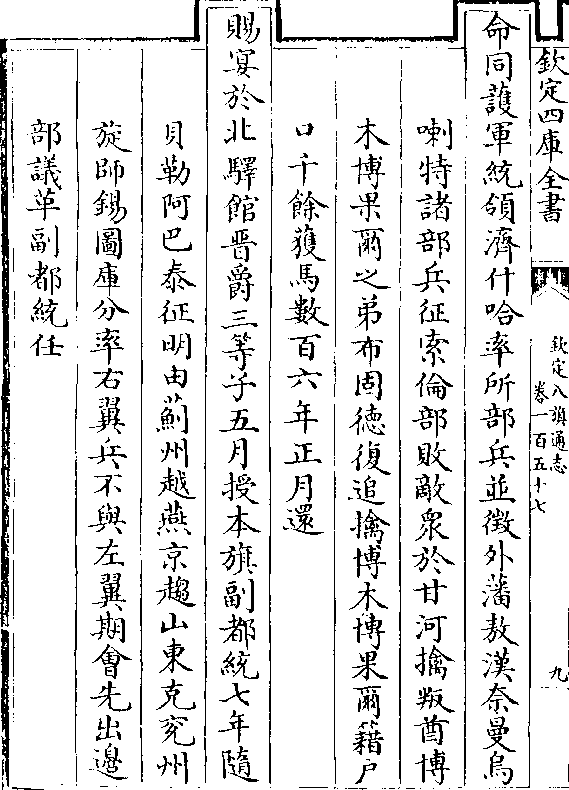 欽定四庫全書
欽定八旗通志
卷一百五十七
九
命同護軍統領濟什哈率所部兵並徵外藩敖漢奈曼烏
喇特諸部兵征索倫部敗敵衆於甘河擒叛酋博
木博果爾之弟布固德復追擒博木博果爾籍戶
口千餘獲馬數百六年正月還
賜宴於北驛館晋爵三等子五月授本旗副都統七年隨
貝勒阿巴泰征明由薊州越燕京趨山東克兖州
旋師錫圖庫分率右翼兵不與左翼期會先出邊
部議革副都統任